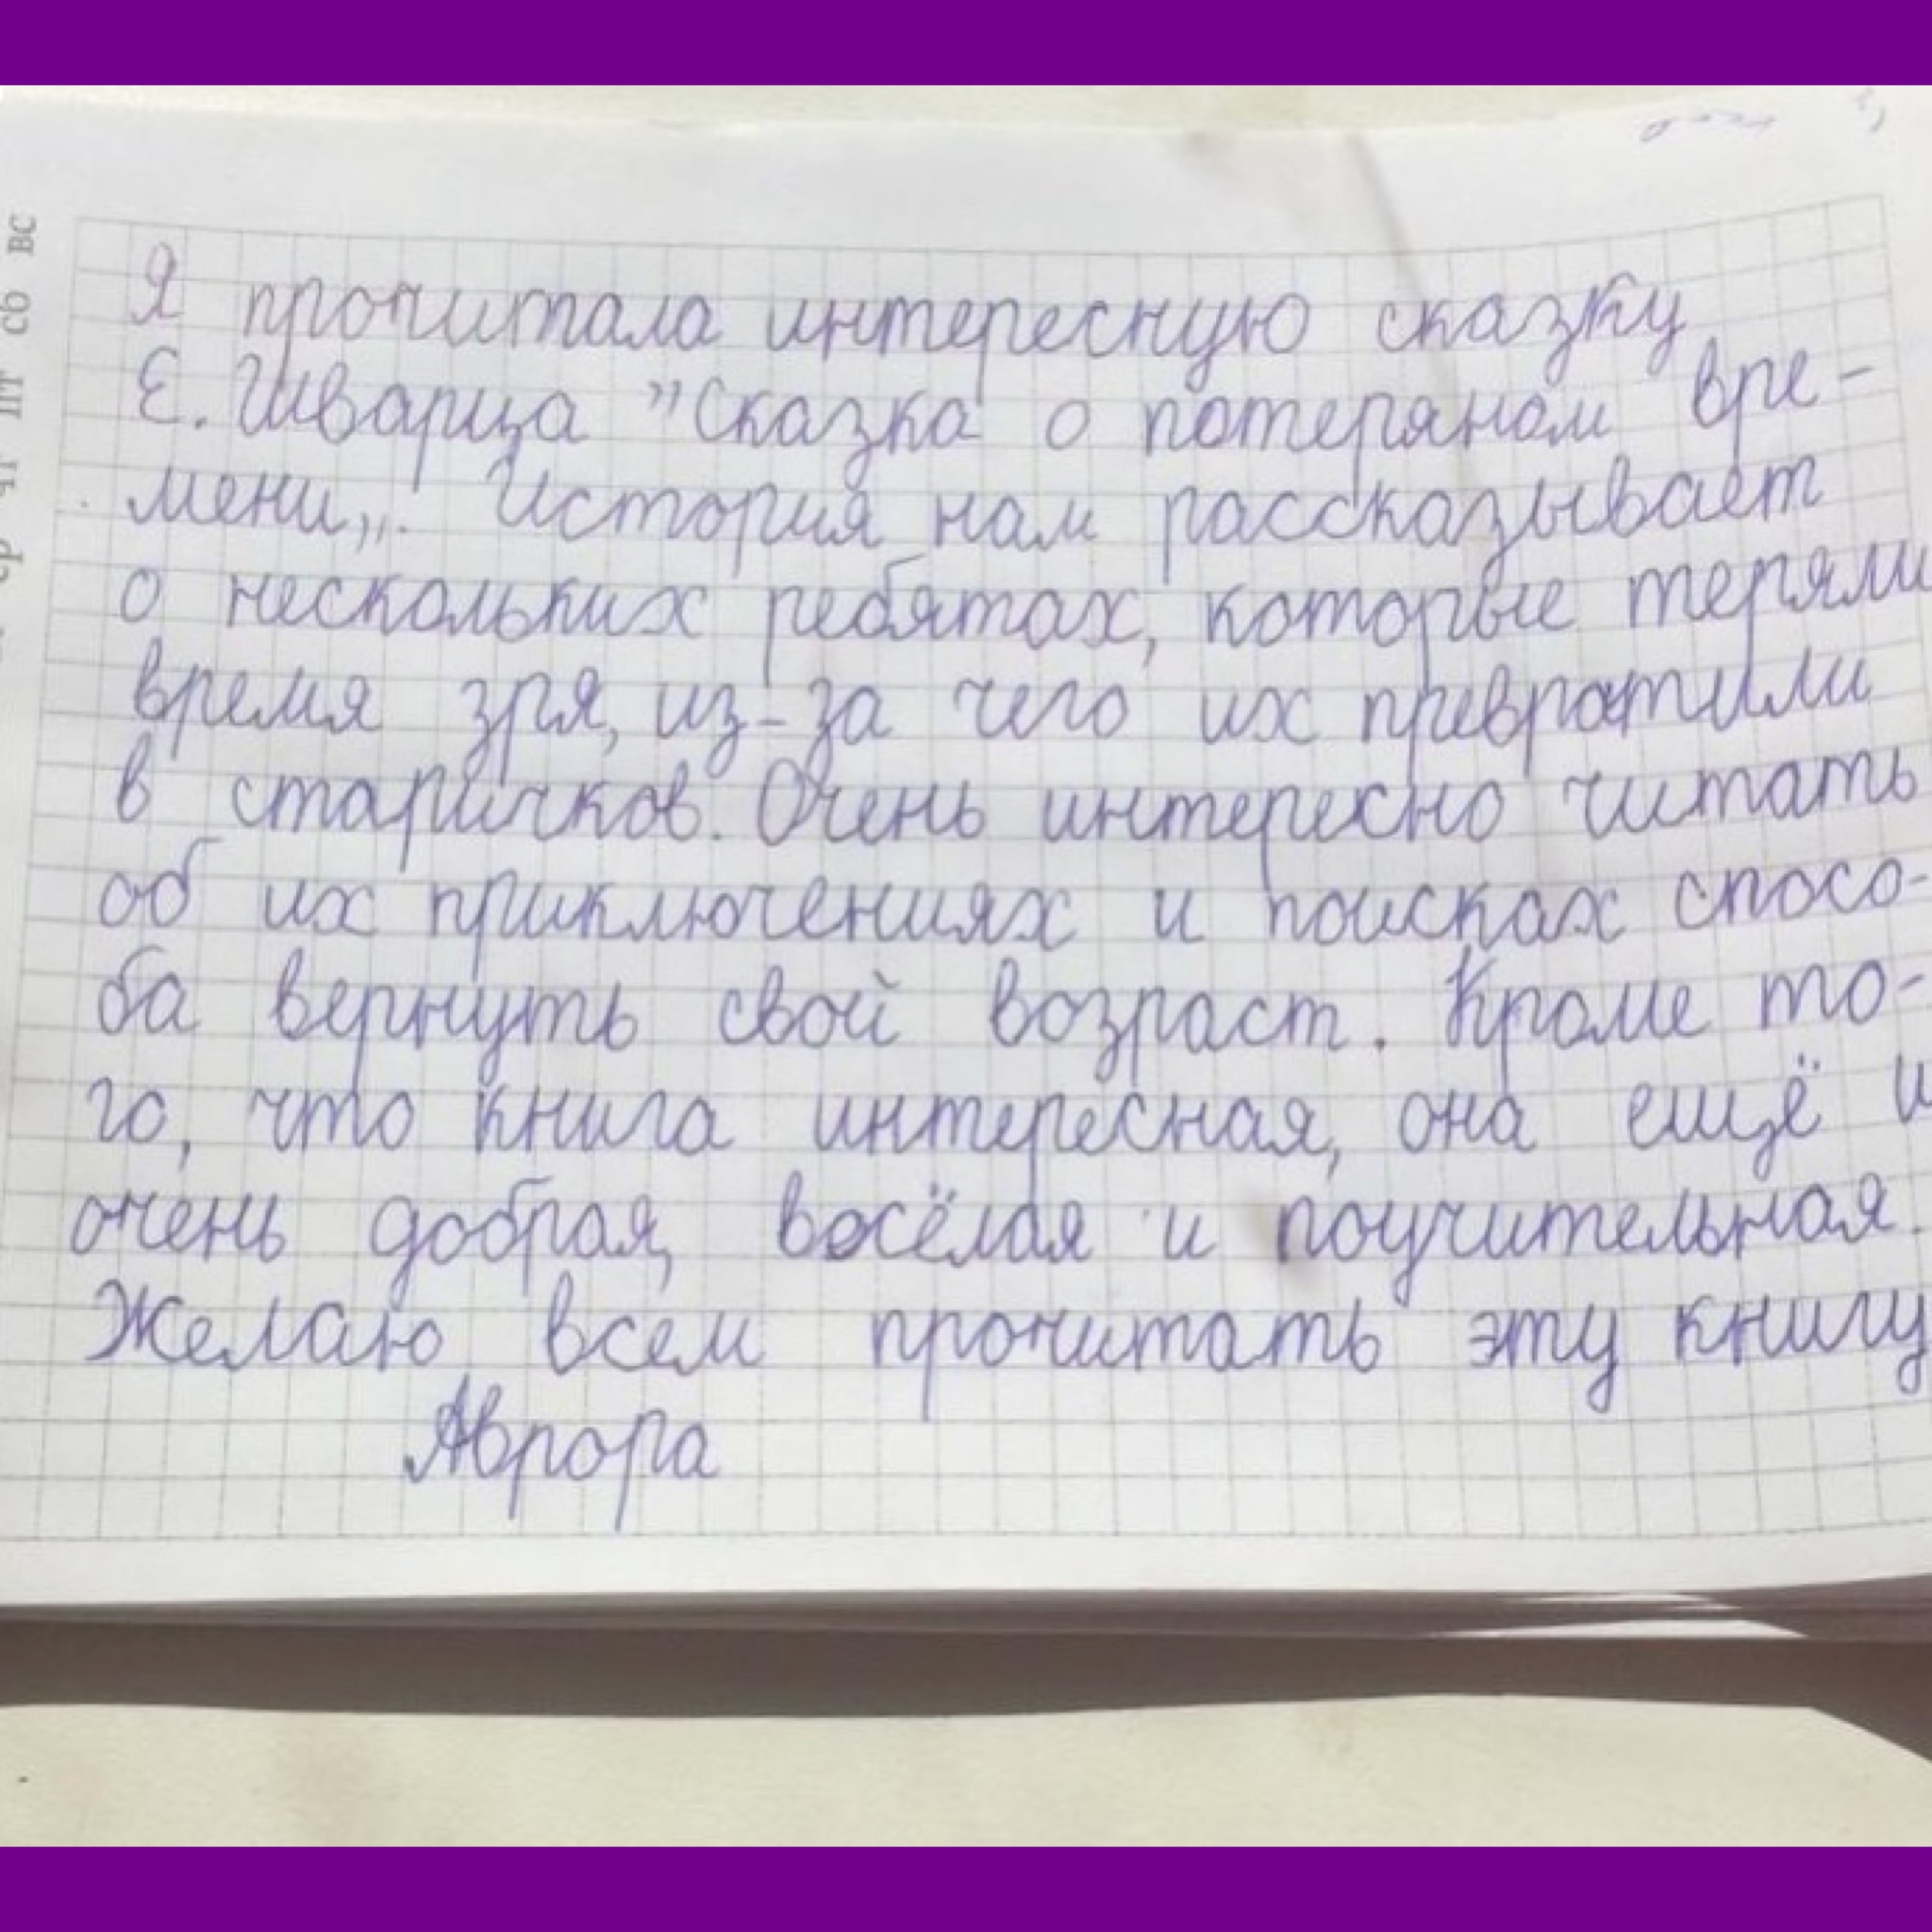 Я прочитала интересную сказку
Е. Шварца "Сказка о потеряном вре-
мени„. История нам рассказывает
о нескольких ребятах, которые теряли
время зря, из-за чего их превратили
в старичков. Очень интересно читать
об их приключениях и поисках спосо-
ба вернуть свой возраст. Кроме то-
го, что книга интересная, она ещё и
очень добрая, весёлая и поучительная.
Желаю всем прочитать эту книгу
Аврора
ср чт пт сб вс